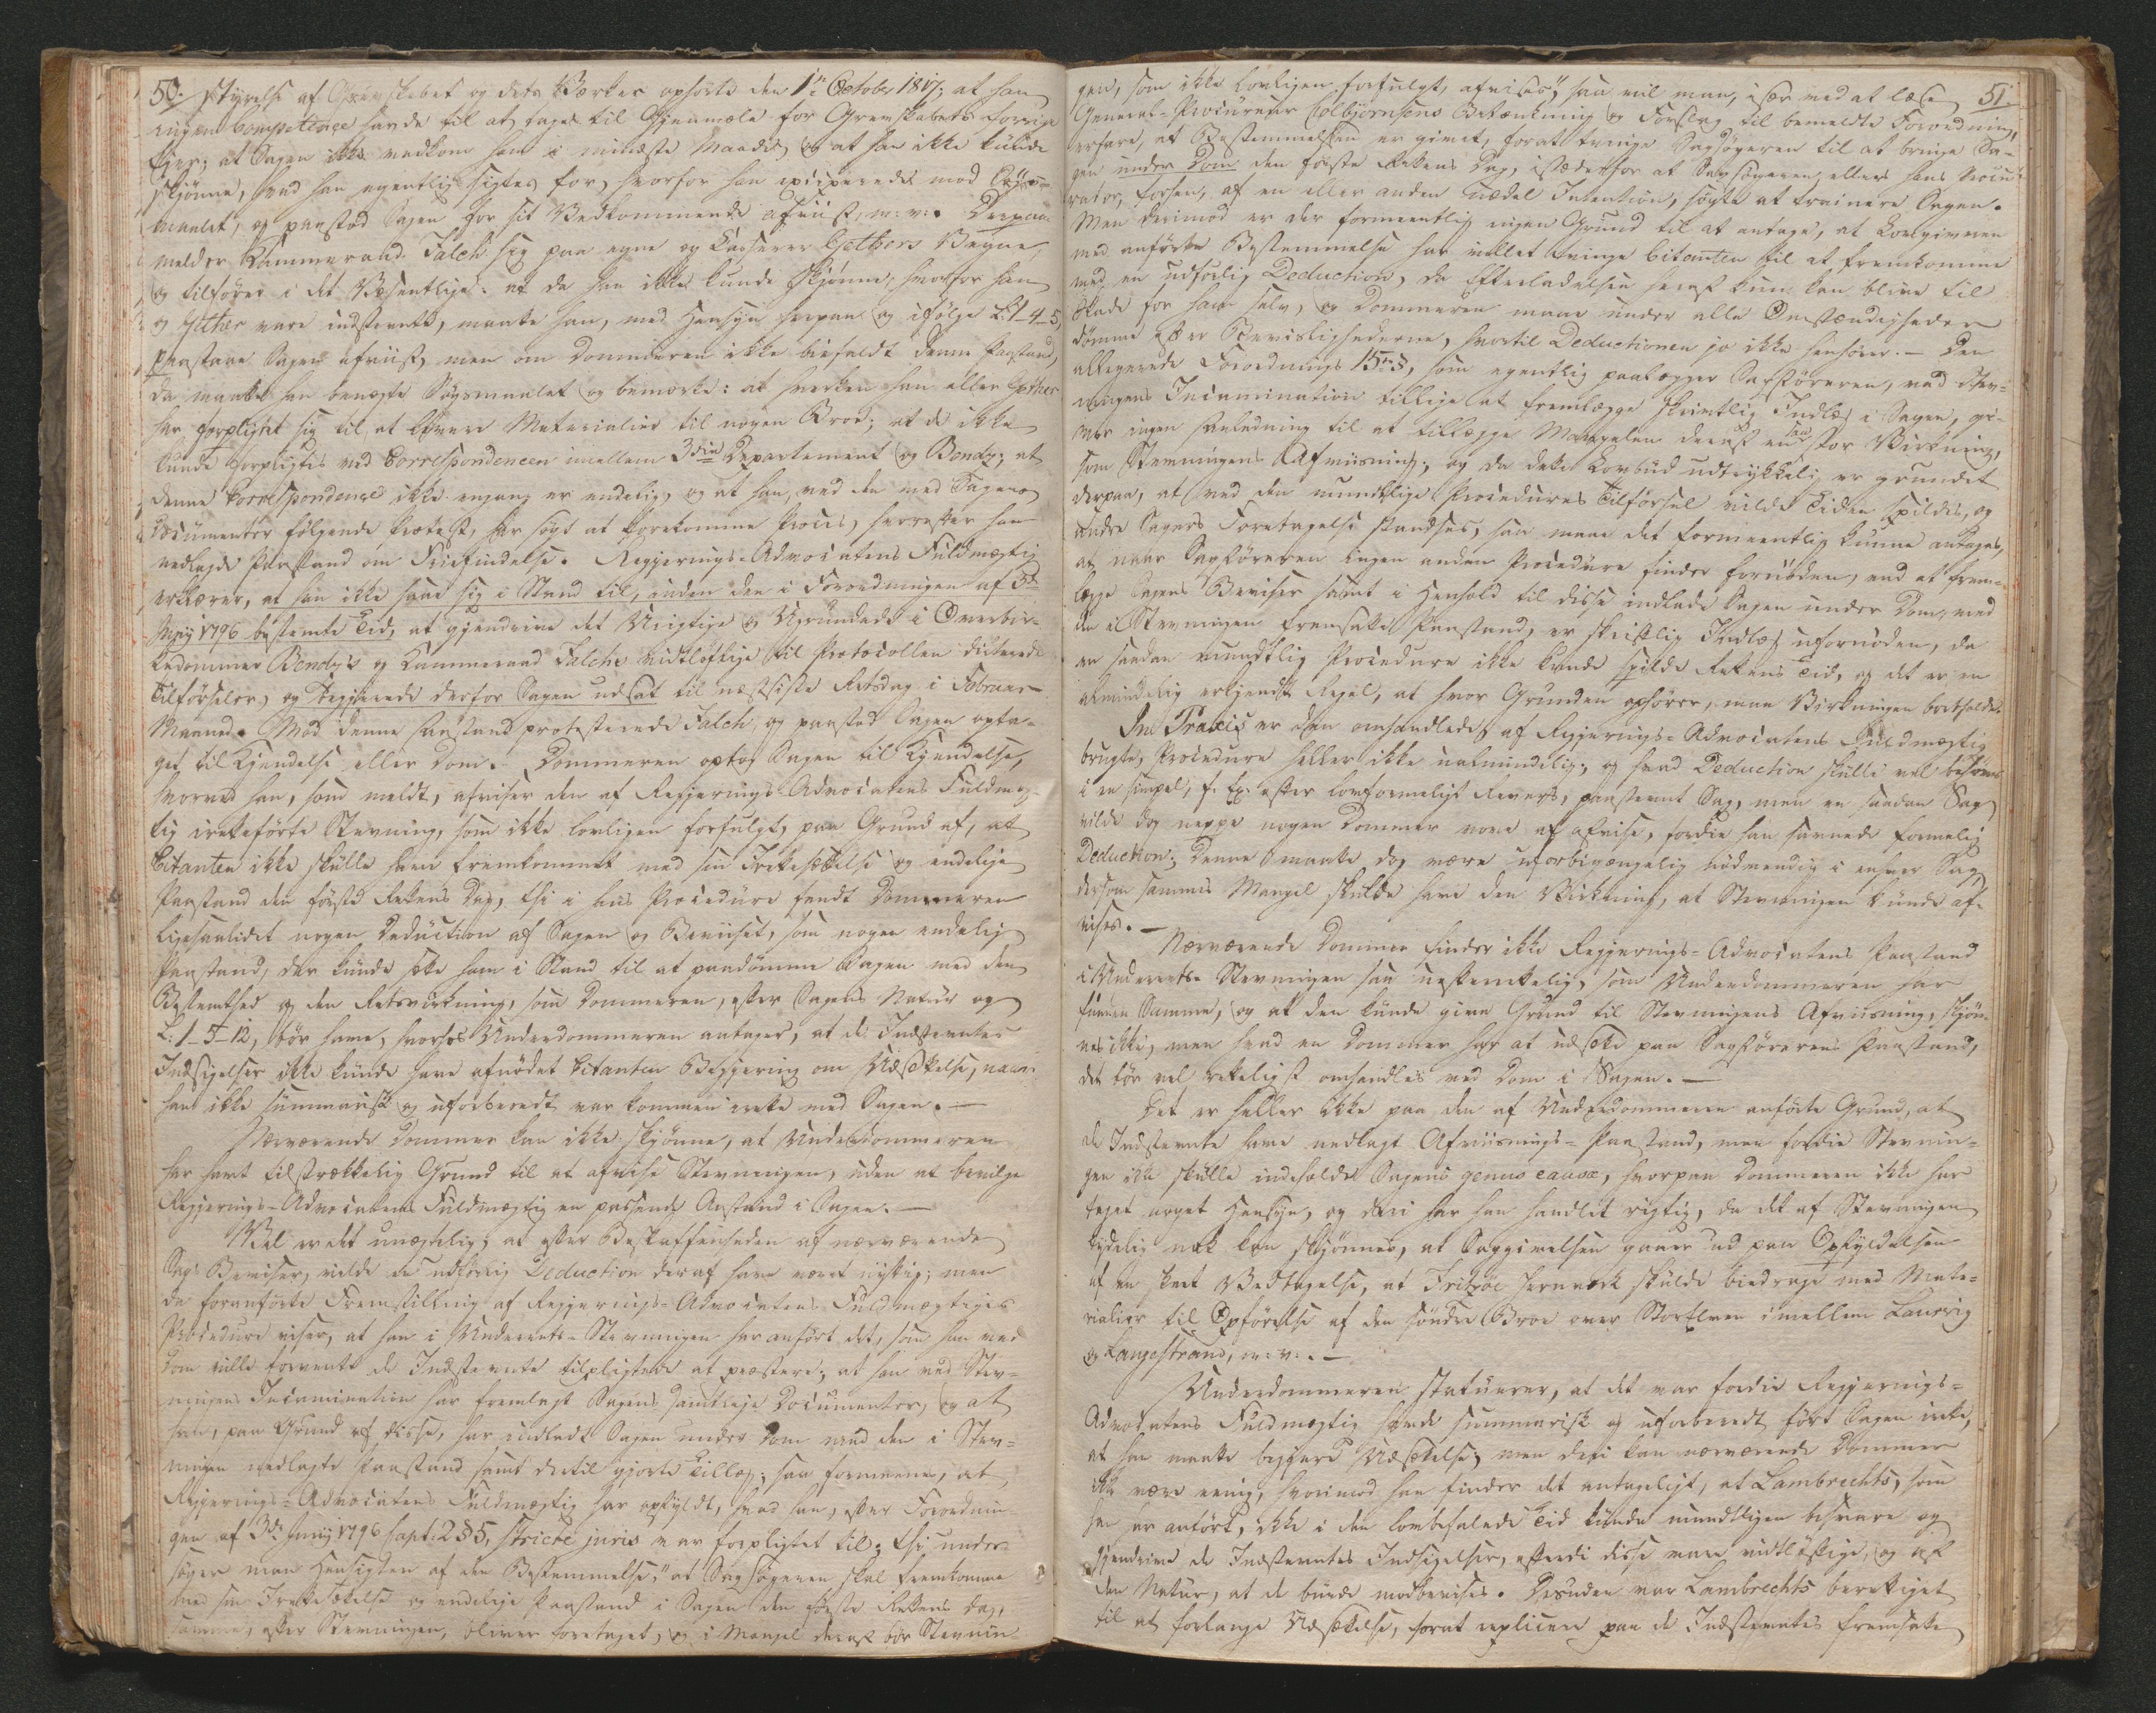 50.
Styrelse af Grevskabet og dets Værker ophørte den 1n October 1817; at han
ingen Competence havde til at tages til Gjenmæle for Grevskabets forrige
Ejer; at Sagen ikke vedkom ham i mindste Maade, og at han ikke kunde
skjønne, hvad han egentlig sigtes for, hvorfor han exciperede mod Søgs-
maalet, og paastod Sagen for sit Vedkommende afviist, m: v:. Derpaa
melder Kammerraad Falch sig paa egne og Casserer Gethers Vegne,
og tilfører i det Væsentlige: at da han ikke kunde skjønne, hvorfor han
og Gether vare indstevnte, maatte han, med Hensyn hertil og ifølge L: 1-4-5,
paastaae Sagen afviist, men om Dommeren ikke bifaldt denne Paastand,
da maatte han benægte Søgsmaalet og bemærke: at hverken han eller Gether
har forpligtet sig til, at levere Materialier til nogen Broe; at de ikke
kunde forpligtes ved Correspondencen imellem 3die Departement og Bendz; at
denne Correspondence ikke engang er endelig, og at han, ved den med Sagens
Documenter følgende Protest, har søgt at forekomme Proces, hvorefter han
nedlagde Paastand om Frifindelse. Regjerings-Advocatens Fuldmægtig
erklærer, at han ikke saae sig i Stand til, inden den i Forordningen af 3de
Junij 1796 bestemte Tid, at gjendrive det Urigtige og Ugrundede i Overbir-
kedommer Bendz's og Kammerraad Falchs vidtløftige til Protocollen dicterede
Tilførseler, og begjerede derfor Sagen udsat til næstsidste Retsdag i Februar
Maaned. Mod denne Anstand protesterede Falch, og paastod Sagen opta-
get til Kjendelse eller Dom. Dommeren optog Sagen til Kjendelse,
hvorved han, som meldt, afviser den af Regjerings-Advocatens Fuldmæg-
tig iretteførte Stevning, som ikke lovligen forfulgt, paa Grund af, at
Citanten ikke skulle have fremkommet med sin Irettesættelse og endelige
Paastand den første Rettens Dag, thi i hans Procedure fandt Dommeren
ligesaalidet nogen Deduction af Sagen og Beviiset, som nogen endelig
Paastand, der kunde sætte ham i Stand til at paadømme Sagen med den
Bestemthed og den Retsvirkning, som Dommeren, efter Sagens Natur og
L: 1-5-12, bør have, hvorhos Underdommeren antager, at de Indstevntes
Indsigelser ikke kunde have afnødet Citanten Begjering om Udsættelse, naar
han ikke summarisk og uforberedt var kommen irette med Sagen. —
Nærværende Dommer kan ikke skjønne, at Underdommeren
har havt tilstrækkelig Grund til at afvise Stevningen, uden at bevilge
Regjerings-Advocatens Fuldmægtig en passende Anstand i Sagen. —
Vel er det unægtelig, at efter Beskaffenheden af nærværende
Sags Beviser, vilde en udførlig Deduction deraf have været nyttig; men
da foranførte Fremstilling af Regjerings-Advocatens Fuldmægtiges
Procedure viser, at han i Underrets-Stevningen har anført det, som han ved
Dom ville forvente de Indstevnte tilpligtede at præstere; at han ved Stev-
ningens Incamination har fremlagt Sagens samtlige Documenter, og at
han, paa Grund af disse, har indladt Sagen under Dom med den i Stev-
ningen nedlagte Paastand samt dertil gjorte Tillæg; saa formenes, at
Regjerings-Advocatens Fuldmægtig har opfyldt, hvad han, efter Forordnin-
gen af 3de Junij 1796 Capt: 2 § 5, stricte juris var forpligtet til; thi under-
søger man Hensigten af den Bestemmelse: "at Sagsøgeren skal fremkomme
med sin Irettesættelse og endelige Paastand i Sagen den første Rettens Dag,
samme, efter Stevningen, bliver foretaget, og i Mangel deraf bør Stevnin-
51.
gen, som ikke lovligen forfulgt, afvises", saa vil man, især ved at læse
General-Procureur Colbjørnsens Betænkning og Forslag til bemeldte Forordning,
erfare, at Bestemmelsen er givet, forat tvinge Sagsøgeren til at bringe Sa-
gen under Dom den første Rettens Dag, istædetfor at Sagsøgeren eller hans Procu-
rator, forhen, af en eller anden uædel Intention, søgte at trainere Sagen.
Men derimod er der formeentlig ingen Grund til at antage, at Lovgiveren
med anførte Bestemmelse har villet tvinge Citanten til at fremkomme
med en udførlig Deduction, da Efterladelsen heraf kun kan blive til
Skade for ham selv, og Dommeren maae under alle Omstændigheder
dømme efter Bevisligheder ne, hvortil Deductionen jo ikke henhører. — Den
allegerede Forordnings 15n §, som egentlig paalægger Sagføreren, ved Stev-
ningens Incamination tillige at fremlægge skriftlig Indlæg i Sagen, gi-
ver ingen Anledning til at tillægge Mangelen deraf en saa stor Virkning,
som Stevningens Afviisning; og da dette Lovbud udtrykkelig er grundet
derpaa, at ved den mundtlige Procedures Tilførsel vilde Tiden spildes, og
andre Sagers Foretagelse standses, saa maae det formeentlig kunne antages,
at naar Sagføreren ingen anden Procedure finder fornøden, end at frem-
lægge Sagens Beviser samt i Henhold til disse indlade Sagen under Dom, med
den i Stevningen fremsatte Paastand, er skriftlig Indlæg ufornøden, da
en saadan mundtlig Procedure ikke kunde spilde Rettens Tid, og det er en
almindelig erkjendt Regel, at hvor Grunden ophører, maa Virkningen bortfalde.
In Praxis er den omhandlede, af Regjerings-Advocatens Fuldmægtig
brugte, Procedure heller ikke ualmindelig; og hvad Deduction skulle vel behøves
i en simpel, f. Ex. efter lovformeligt Revers, paastevnt Sag, men en saadan Sag
vilde dog neppe nogen Dommer vove at afvise, fordie han savnede formelig
Deduction; Denne maatte dog være uforbigængelig nødvendig i enhver Sag,
dersom sammes Mangel skulde have den Virkning, at Stevningen kunde af-
vises. —
Nærværende Dommer finder ikke Regjerings-Advocatens Paastand
i Underrets-Stevningen saa ubestemt, som Underdommeren har
funden Samme, og at den kunde give Grund til Stevningens Afviisning, skjøn-
nes ikke, men hvad en Dommer har at udsætte paa Sagførerens Paastand,
det bør vel retteligst omhandles ved Dom i Sagen. —
Det er heller ikke paa den af Underdommeren anførte Grund, at
de Indstevnte have nedlagt Afviisnings-Paastand, men fordie Stevnin-
gen ikke skulle indeholde Sagens genus causæ, hvorpaa Dommeren ikke har
taget noget Hensyn, og deri har han handlet rigtig, da det af Stevningen
tydelig nok kan skjønnes, at Saggivelsen gaaer ud paa Opfyldelsen
af en skeet Vedtagelse, at Fritzøe Jernverk skulde biedrage med Mate-
rialier til Opførelse af den søndre Broe over Storelven imellem Laurvig
og Langestrand, m: v:. —
Underdommeren statuerer, at det var fordie Regjerings-
Advocatens Fuldmægtig havde summarisk og uforberedt ført Sagen irette,
at han maatte begjere Udsættelse; men deri kan nærværende Dommer
ikke være eenig, hvorimod han finder det antageligt, at Lambrechts, som
han har anført, ikke i den lovbefalede Tid kunde mundtligen besvare og
gjendrive de Indstevntes Indsigelser, efterdi disse vare vidtløftige, og af
den Natur, at de burde modbevises. Desuden var Lambrechts berettiget
til at forlange Udsættelse, forat replicere paa de Indstevntes fremsatte